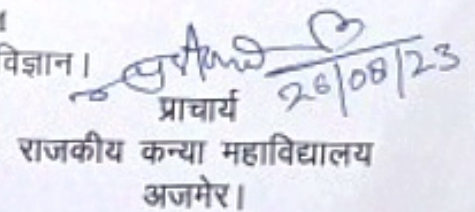 विज्ञान।
26/08/23
प्राचार्य
राजकीय कन्या महाविद्यालय
अजमेर।